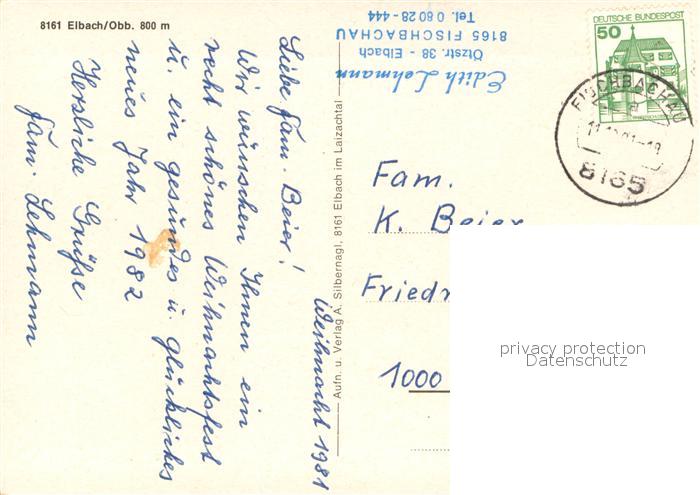 8161 Elbach/Obb. 800 m
Weihnacht 1981
Liebe Fam. Beier!
Wir wünschen Ihnen ein
recht schönes Weihnachtsfest
u. ein gesundes u. glückliches
neues Jahr 1982
Herzliche Grüße
Fam. Lehmann
Aufn. u. Verlag A. Silbernagl, 8161 Elbach im Laizachtal
Edith Lehmann
Ötzstr. 38 - Elbach
8165 FISCHBACHAU
Tel. 0 80 28 - 444
DEUTSCHE BUNDESPOST
50
FISCHBACHAU
8165
Fam.
K. Beier
Friedr
1000
privacy protection
Datenschutz